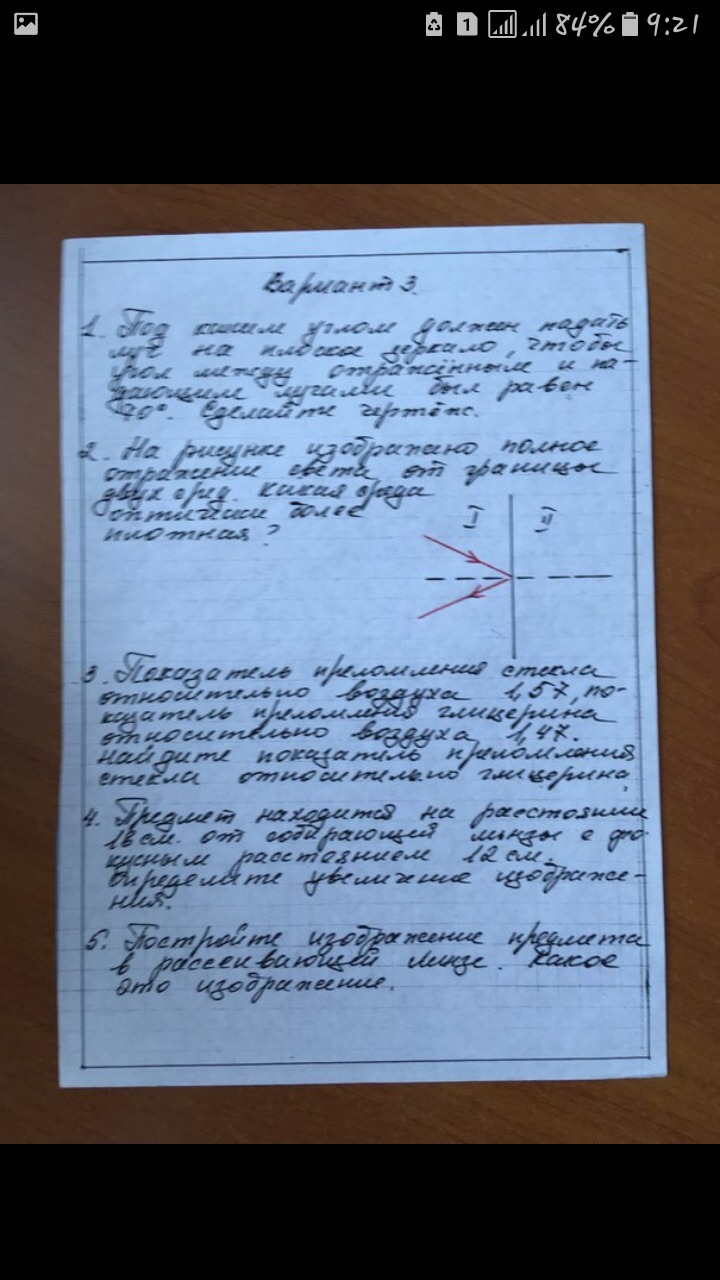 1 84% 9:21
Вариант 3.
1. Под каким углом должен падать
луч на плоское зеркало, чтобы
угол между отражённым и па-
дающим лучами был равен
70°. Сделайте чертёж.
2. На рисунке изображено полное
отражение света от границы
двух сред. Какая среда
оптически более
плотная?
I II
3. Показатель преломления стекла
относительно воздуха 1,57, по-
казатель преломления глицерина
относительно воздуха 1,47.
Найдите показатель преломления
стекла относительно глицерина
4. Предмет находится на расстоянии
16 см. от собирающей линзы с фо-
кусным расстоянием 12 см.
Определите увеличение изображе-
ния.
5. Постройте изображение предмета
в рассеивающей линзе. Какое
это изображение.